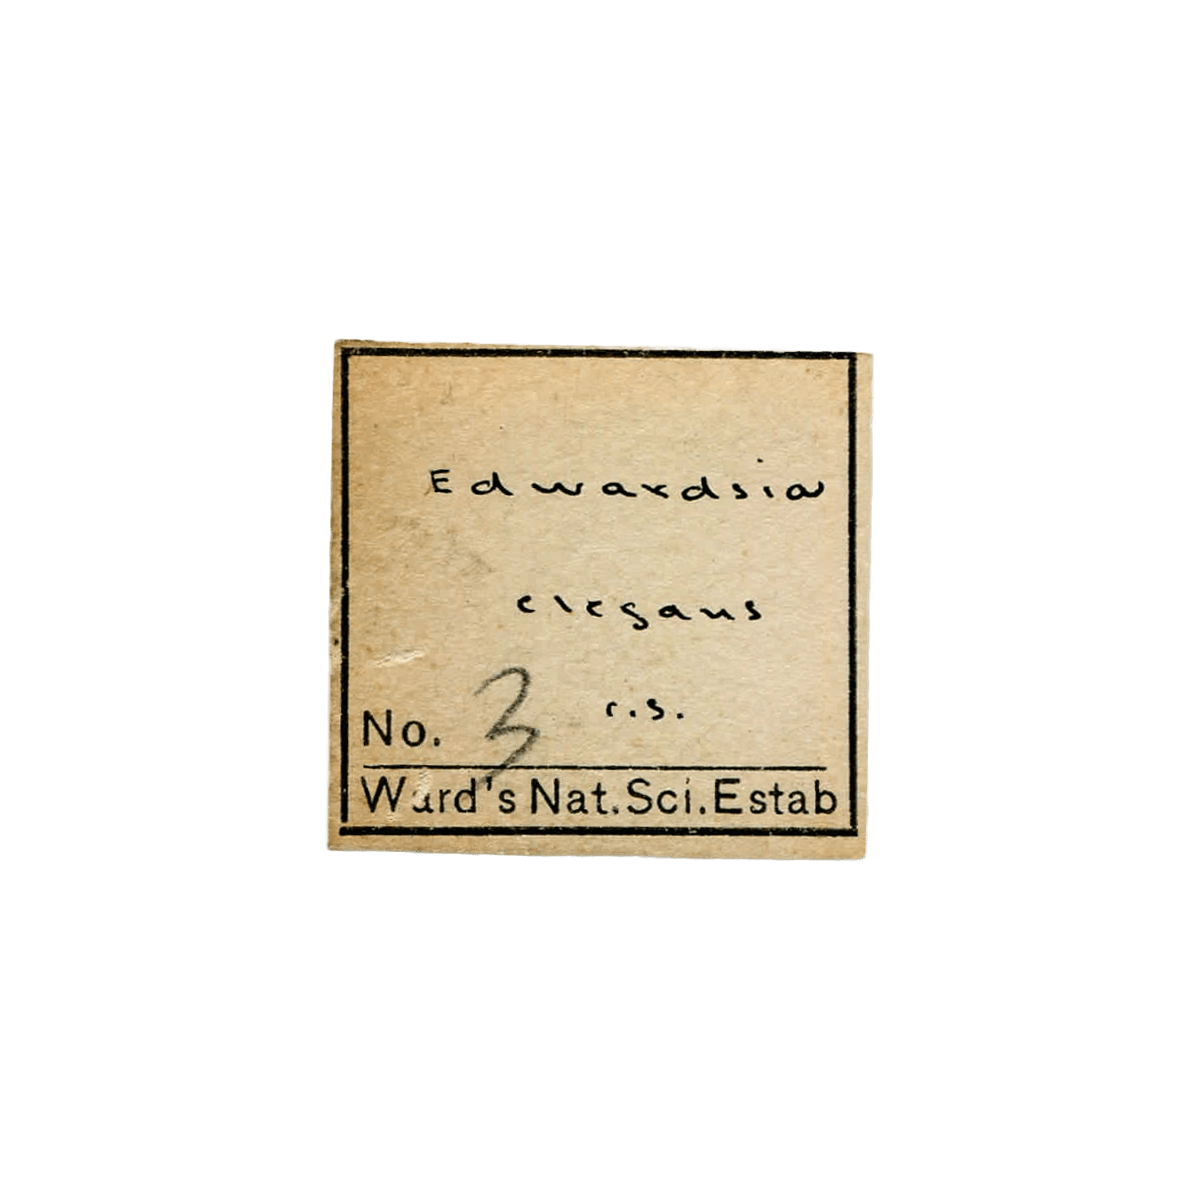 Edwardsia
elegans
r.s.
No. 3
Ward's Nat. Sci. Estab